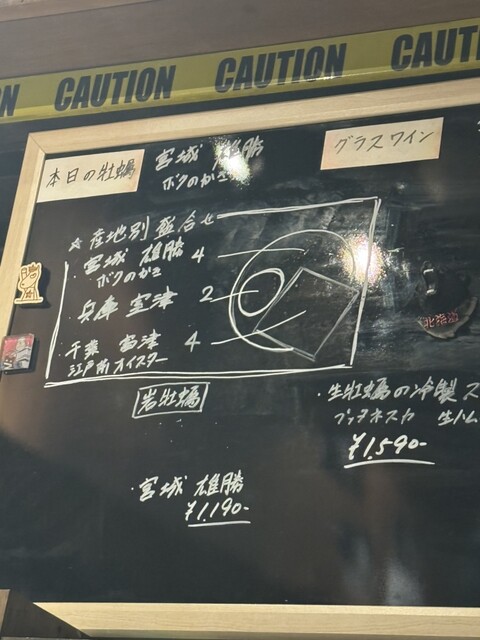 CAUTION CAUTION CAUT
本日の牡蠣
宮城 雄勝
ボクのかき
グラスワイン
☆ 産地別盛合せ
・宮城 雄勝 4
ボクのかき
・兵庫 室津 2
・千葉 富津 4
江戸前オイスター
北海道
岩牡蠣
・宮城 雄勝
¥1,190-
・生牡蠣の冷製ス
ブッタネスカ 生ハム
¥1,590-